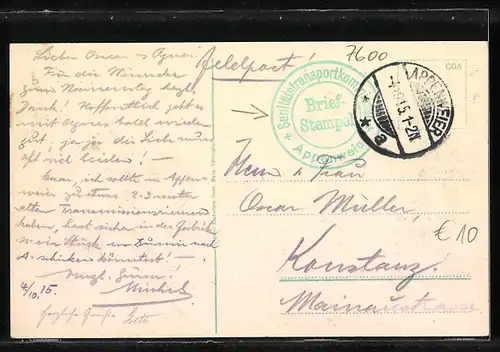 Lieben Oscar & Agnes!
Für die Wünsche
zum Namenstag herzl.
Dank! Hoffentlich geht es
mit Agnes bald wieder
gut, ja ja die Liebe muss
oft viel leiden! —
Oscar, ich sollte in Appen-
weier zu etwa 2-3 meter
alten Transmissionsriemen
haben, hast sicher in der Fabrik
so ein Stück, wo Du mir nach
A. schicken könntest! —
4/10. 15.
Michel
Herzliche Grüße
Feldpost!
7600
COA
* Sanitätstransportkom
Brief-
Stempel
Appenweier *
APPENWEIER
15. 1-2N
* a
Herrn & Frau
Oscar Müller
€ 10
Konstanz
Mainaustrasse